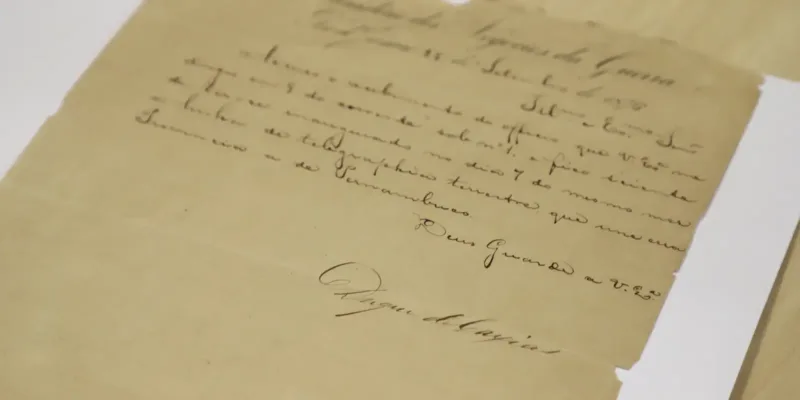 Negocios da Guerra
25 de Setembro de 1876
Illmo e Exmo Senr
Accuso o recebimento do officio que V. Exa me
dirigio em 9 do corrente sob nº 1, e fico sciente
de ter-se inaugurado no dia 7 do mesmo mez
a linha de telegraphia terrestre que une essa
Provincia a de Pernambuco.
Deus Guarde a V. Exa
Duque de Caxias